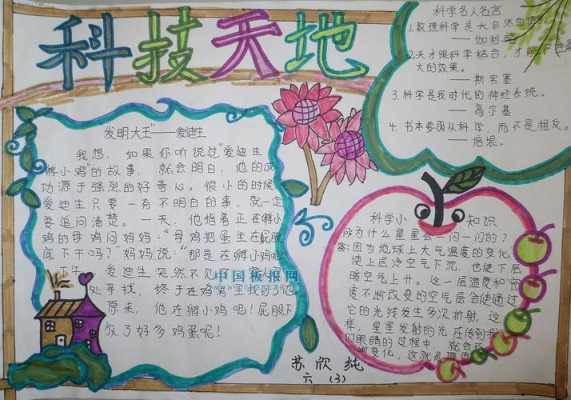 科技天地
发明大王"——爱迪生
我想，如果你听说过"爱迪生
孵小鸡"的故事，就会明白，他的成
功源于强烈的好奇心。很小的时候
爱迪生只要一有不明白的事，就一定
要追问清楚。一天，他指着正在孵小
鸡的母鸡问妈妈："母鸡把蛋坐在屁股
底下干吗？"妈妈说："那是在孵小鸡
爱迪生突然不见
中国板报网
处寻找，终于在鸡窝里找到了他
原来，他在孵小鸡呢！屁股下
放了好多鸡蛋呢！
科学名人名言
1.数理科学是大自然
——伽利略
2.天才跟科学结合，才能
大的效果。
——斯宾塞
3.科学是我时代的神经系统。
——高尔基
4.书本要跟从科学，而不是相反。
——培根。
科学小知识
为什么星星会一闪一闪的？
答：因为地球上大气温度的变化
使上层冷空气下沉，也使下层
暖空气上升。这一层温度和密
度不断改变的空气层会使通过
它的光线发生多次折射，这
样，星星发射的光在传到我
们眼睛的过程中，就会
变化，这就
苏欣纯
六（3）